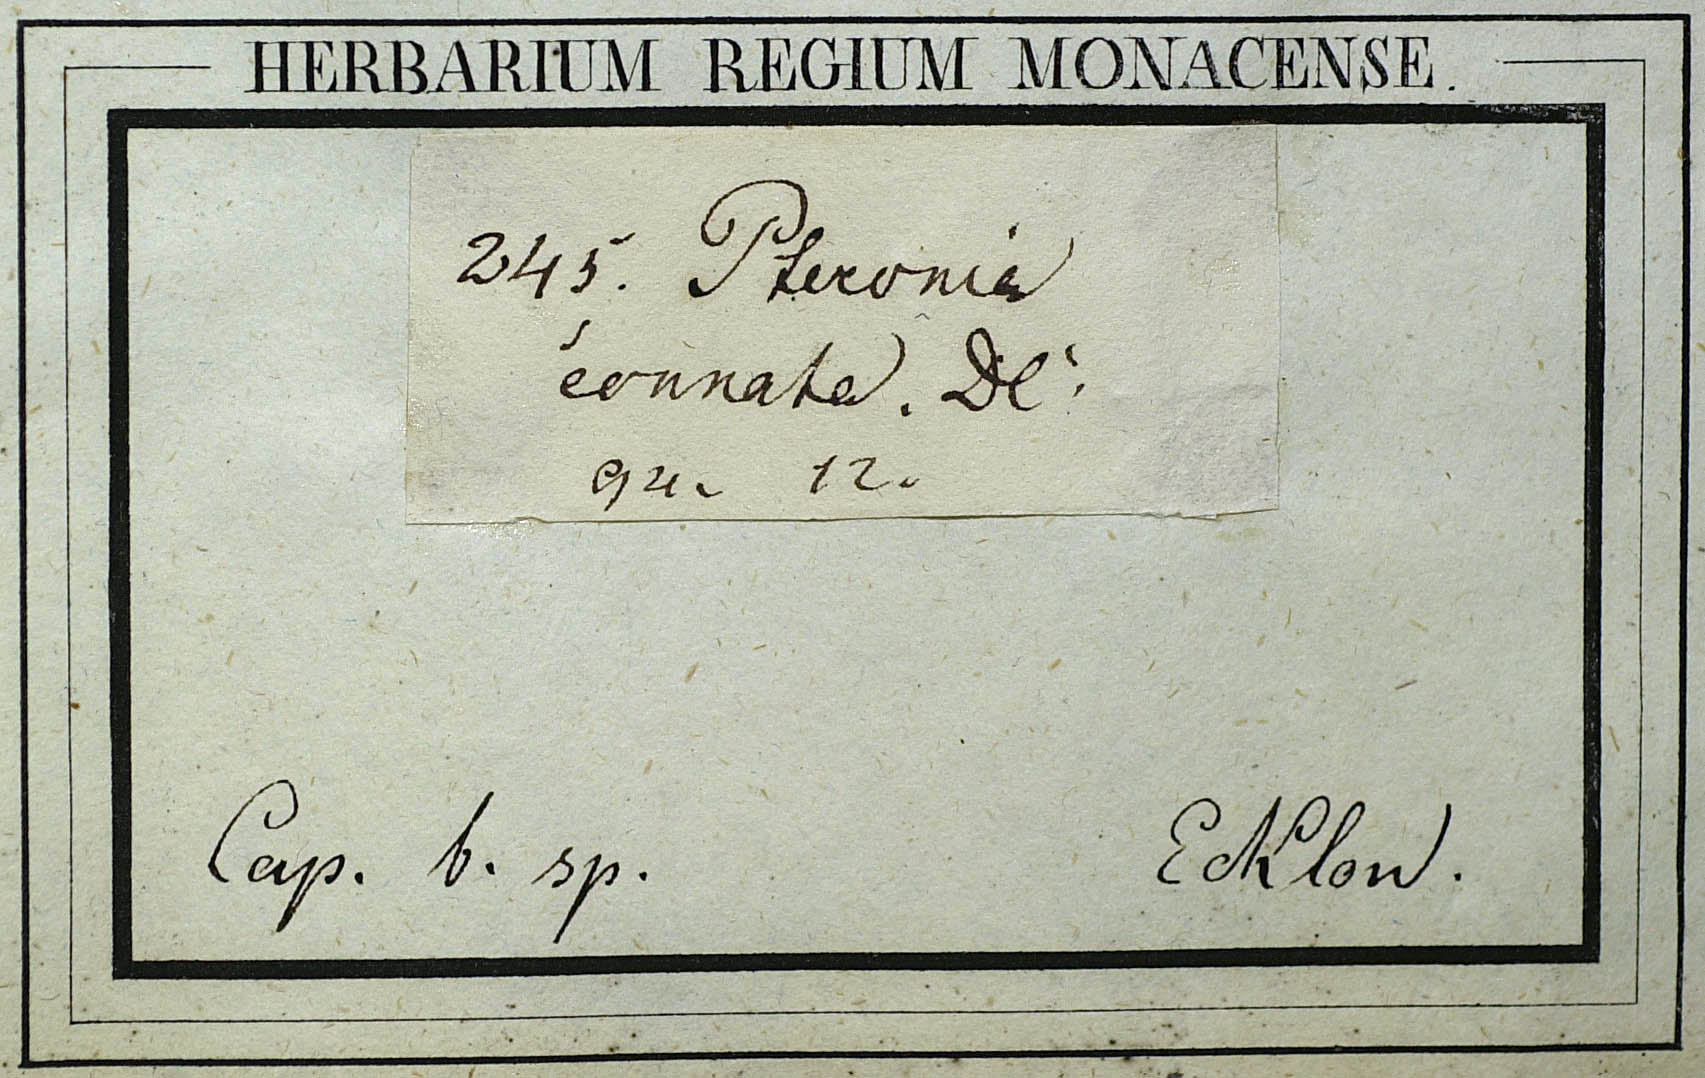 HERBARIUM REGIUM MONACENSE.
245. Pteronia
connata. DC.
12.
Cap. b. sp.
Ecklon.